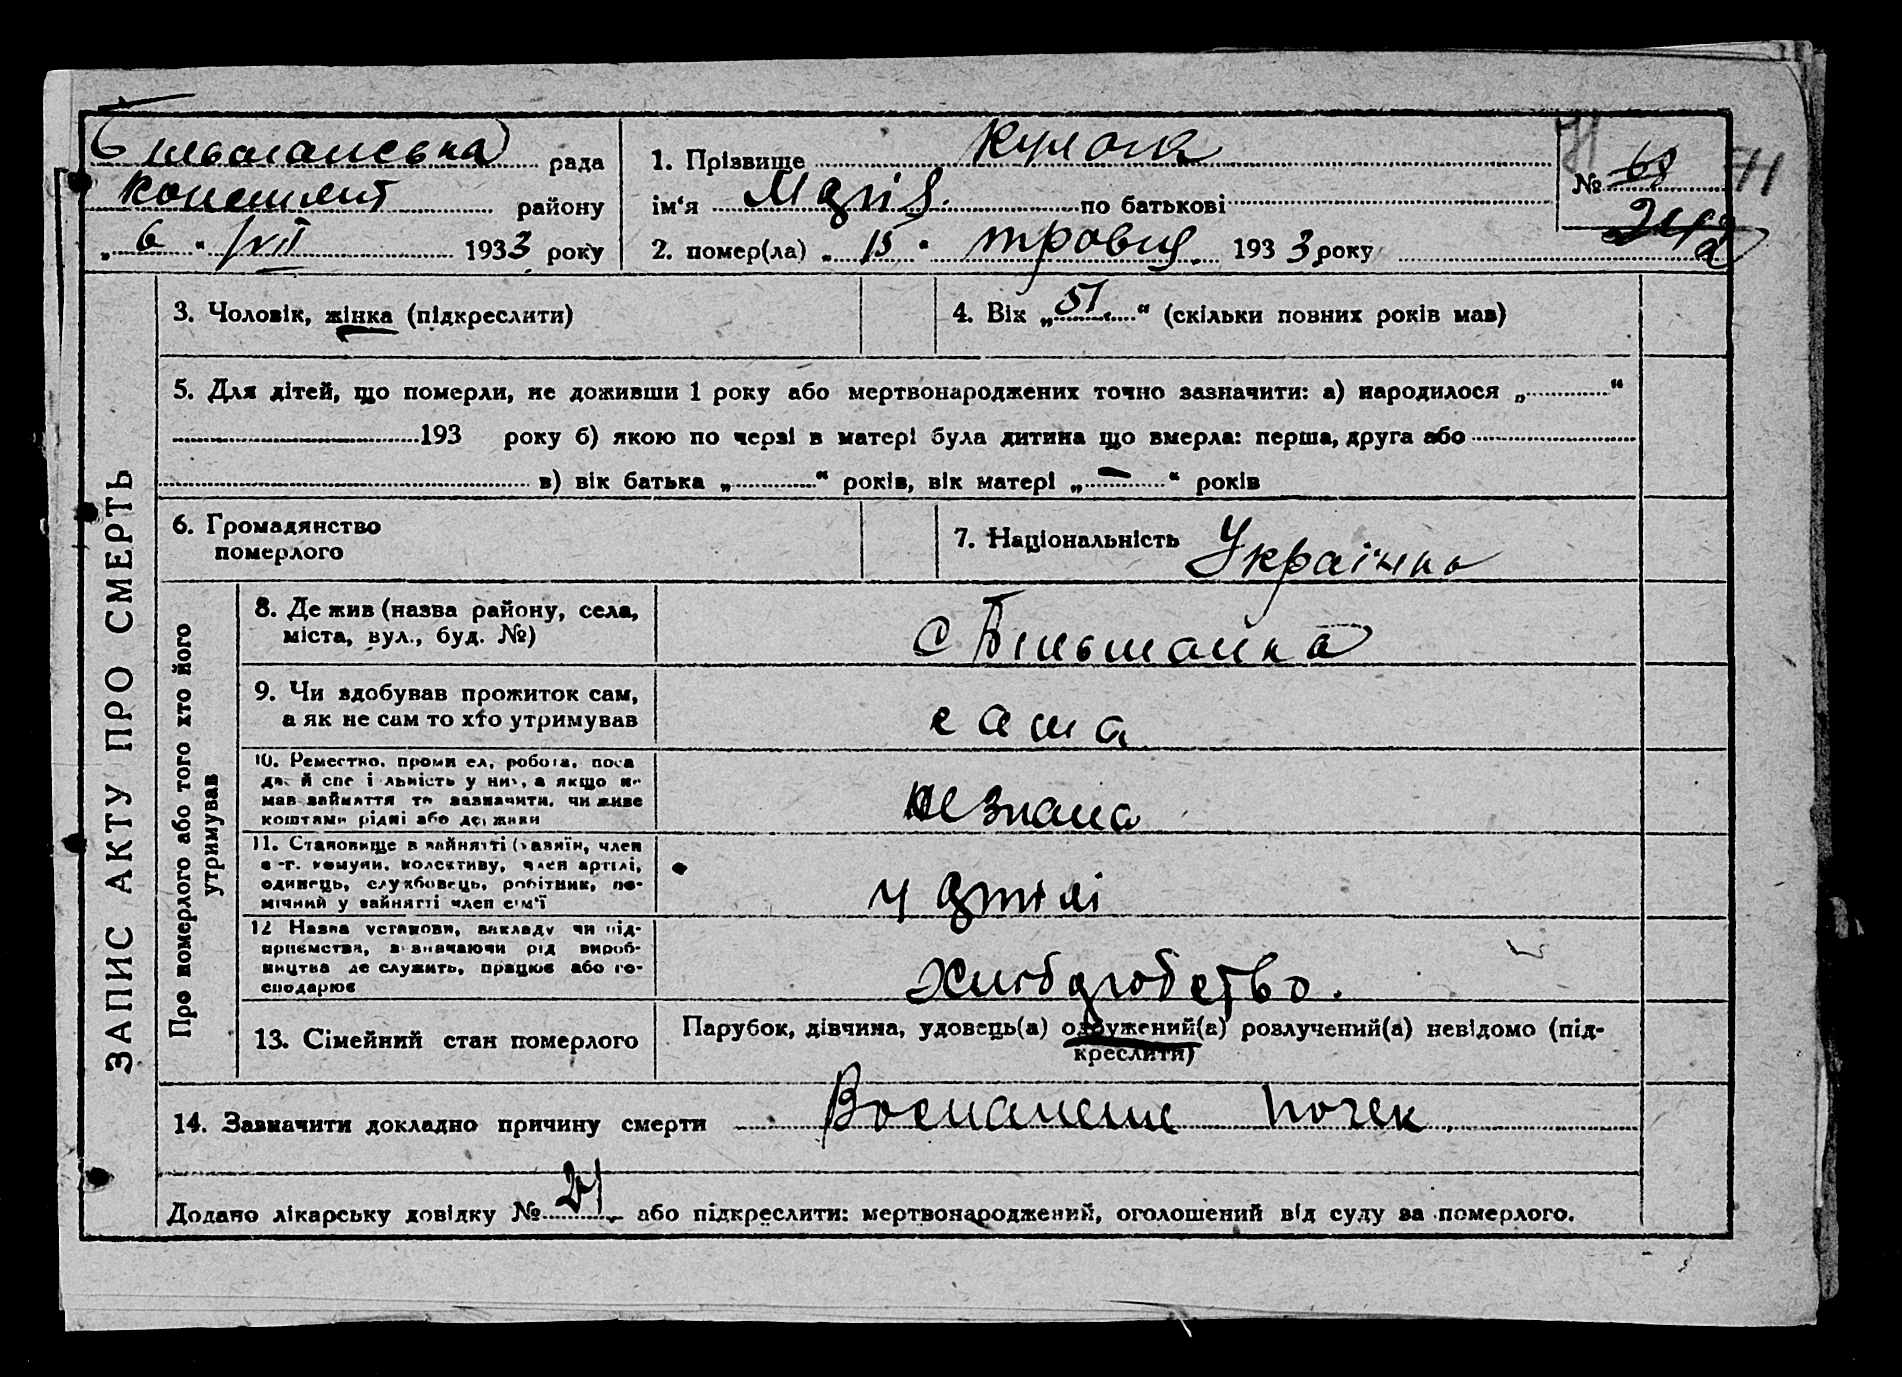 Більшанська рада
району
„ 6 “ VII 1933 року
1. Прізвище
ім'я Марія по батькові
2. помер(ла) „ 15 “ травня 1933 року
№ 68
71
3. Чоловік, жінка (підкреслити)
4. Вік „ 51 “ (скільки повних років мав)
5. Для дітей, що померли, не доживши 1 року або мертвонароджених точно зазначити: а) народилося „ “
193 року б) якою по черзі в матері була дитина що вмерла: перша, друга або
в) вік батька „ “ років, вік матері „ — “ років
6. Громадянство
померлого
7. Національність Українка
ЗАПИС АКТУ ПРО СМЕРТЬ
Про померлого або того хто його
утримував
8. Де жив (назва району, села,
міста, вул., буд. №)
с Більшанка
9. Чи здобував прожиток сам,
а як не сам то хто утримував
сама
10. Ремество, промисел, робота, поса
да й спеціальність у них, а якщо не
мав зайняття то зазначити, чи живе
коштами рідні або держави
незнана
11. Становище в зайнятті (хазяїн, член
с-г. комуни, колективу, член артілі,
одинець, службовець, робітник, по-
мічний у зайнятті член сім'ї
у артілі
12 Назва установи, закладу чи під-
приємства, зазначаючи рід вироб-
ництва де служить, працює або го-
сподарює
Хліборобство.
13. Сімейний стан померлого
Парубок, дівчина, удовець(а) одружений(а) розлучений(а) невідомо (під-
креслити)
14. Зазначити докладно причину смерти Воспаление почек
Додано лікарську довідку № 21 або підкреслити: мертвонароджений, оголошений від суду за померлого.